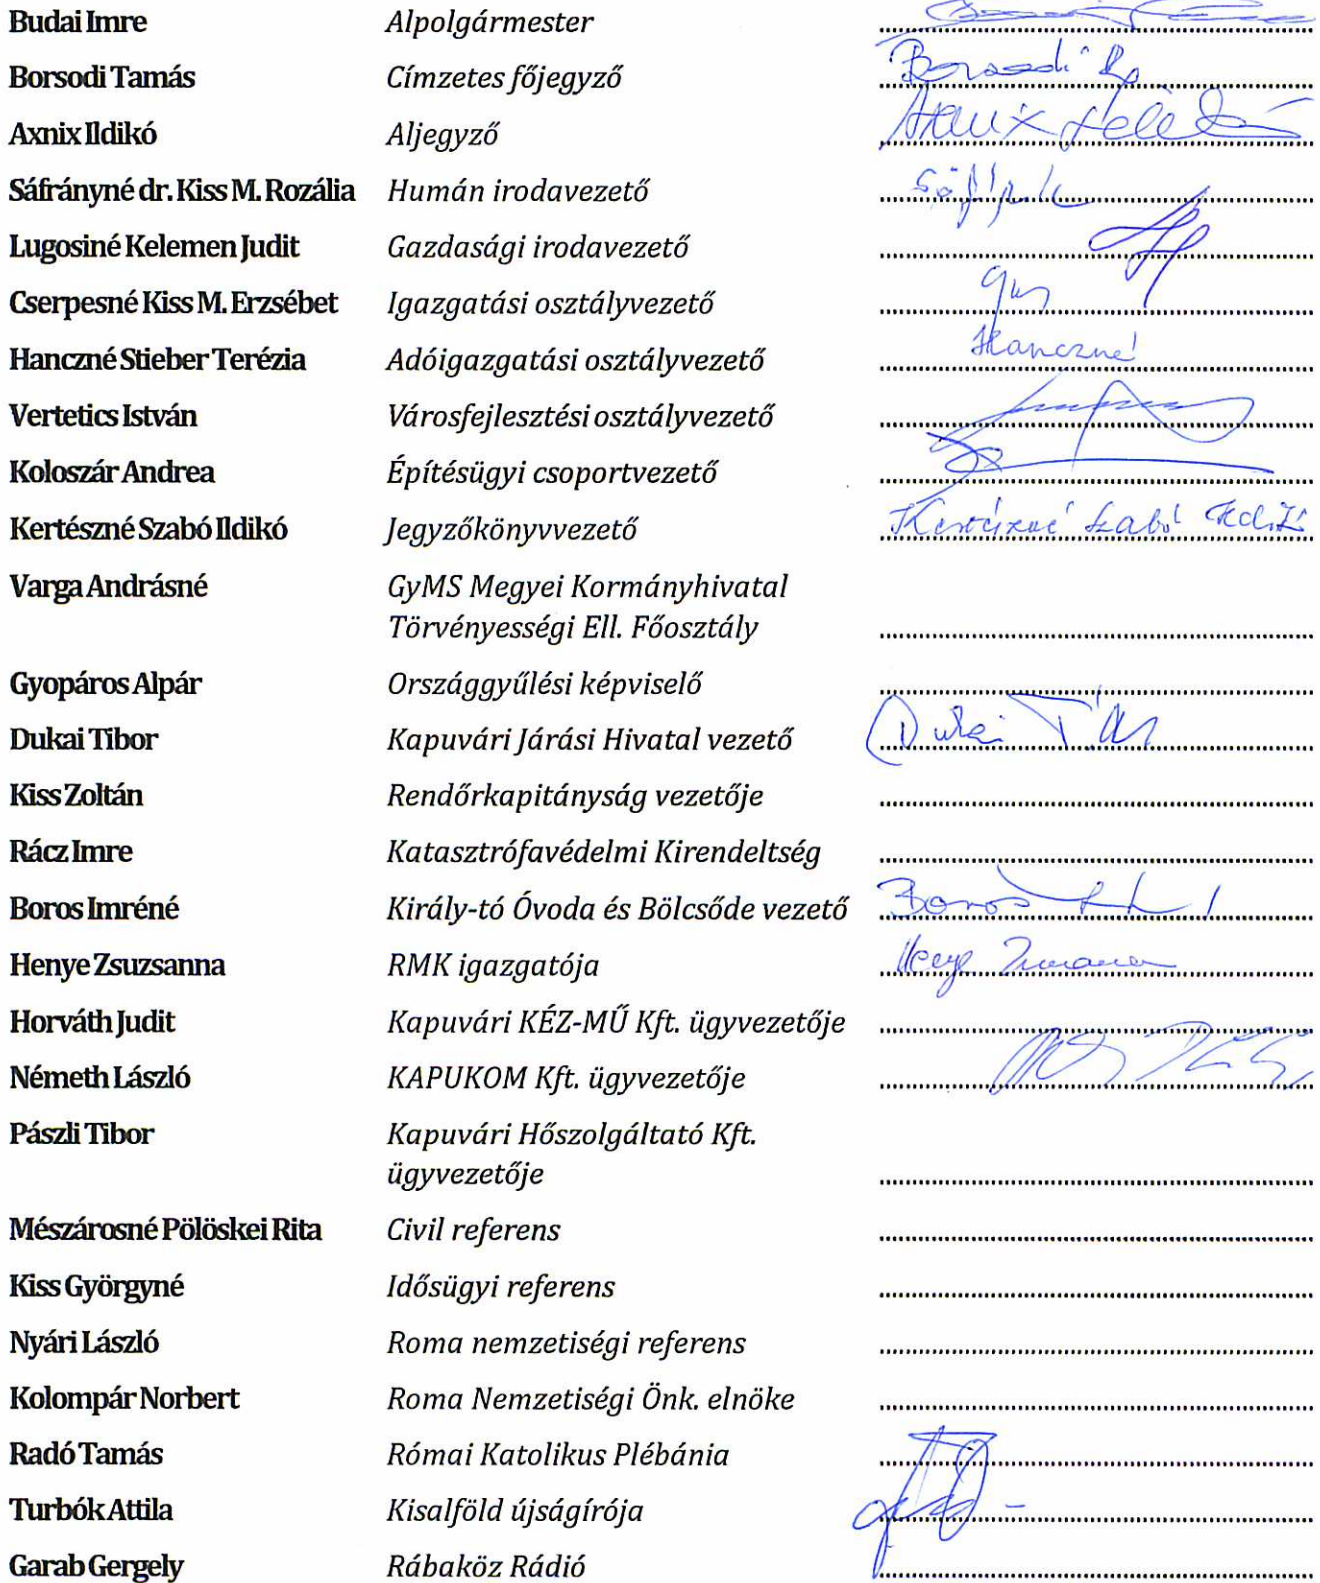 Budai Imre Alpolgármester
Borsodi Tamás Címzetes főjegyző Borsodi
Axnix Ildikó Aljegyző Axnix Ildikó
Sáfrányné dr. Kiss M. Rozália Humán irodavezető
Lugosiné Kelemen Judit Gazdasági irodavezető
Cserpesné Kiss M. Erzsébet Igazgatási osztályvezető
Hanczné Stieber Terézia Adóigazgatási osztályvezető Hanczné
Vertetics István Városfejlesztési osztályvezető
Koloszár Andrea Építésügyi csoportvezető
Kertészné Szabó Ildikó Jegyzőkönyvvezető Kertészné Szabó Ildikó
Varga Andrásné GyMS Megyei Kormányhivatal
Törvényességi Ell. Főosztály
Gyopáros Alpár Országgyűlési képviselő
Dukai Tibor Kapuvári Járási Hivatal vezető Dukai
Kiss Zoltán Rendőrkapitányság vezetője
Rácz Imre Katasztrófavédelmi Kirendeltség
Boros Imréné Király-tó Óvoda és Bölcsőde vezető Boros
Henye Zsuzsanna RMK igazgatója Henye Zsuzsanna
Horváth Judit Kapuvári KÉZ-MŰ Kft. ügyvezetője
Németh László KAPUKOM Kft. ügyvezetője
Pászli Tibor Kapuvári Hőszolgáltató Kft.
ügyvezetője
Mészárosné Pölöskei Rita Civil referens
Kiss Györgyné Idősügyi referens
Nyári László Roma nemzetiségi referens
Kolompár Norbert Roma Nemzetiségi Önk. elnöke
Radó Tamás Római Katolikus Plébánia
Turbók Attila Kisalföld újságírója
Garab Gergely Rábaköz Rádió